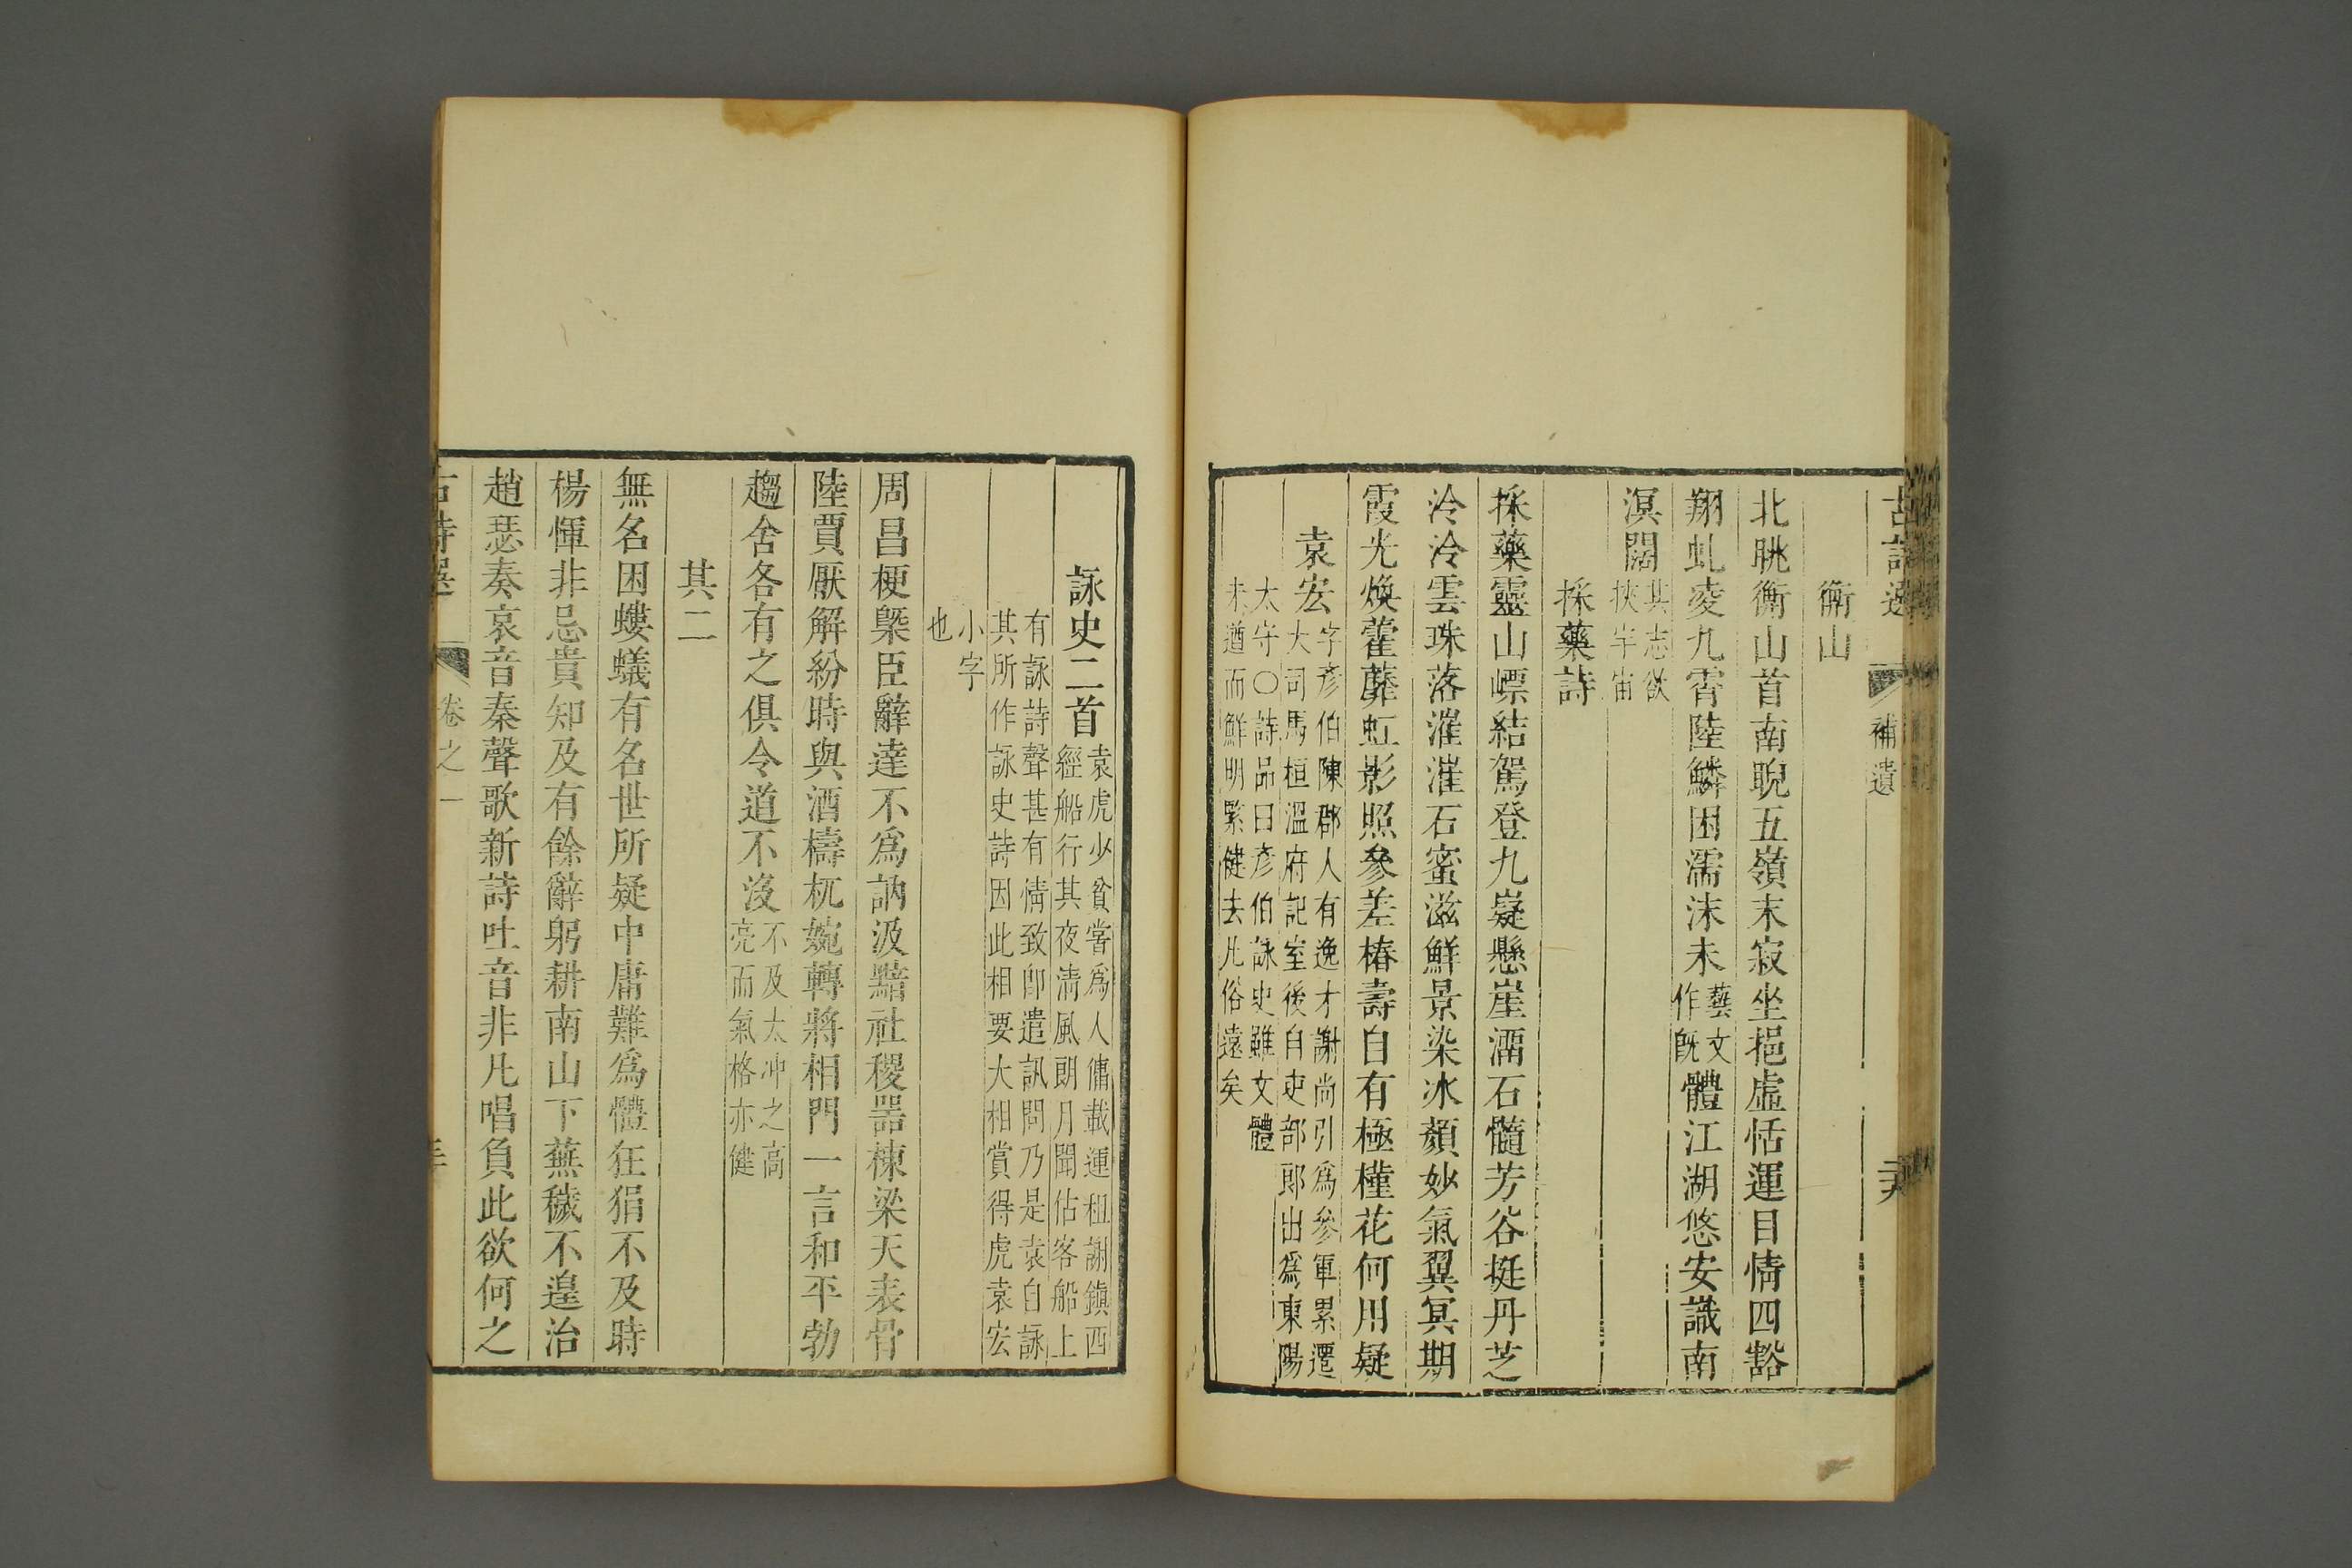 補遺
衡山
北眺衡山首南睨五嶺末寂坐挹虛恬運目情四豁
翔虬凌九霄陸鱗困濡沫未藝文作旣體江湖悠安識南
溟闊其志欲狹宇宙
採藥詩
採藥靈山嶛結駕登九嶷懸崖溜石髓芳谷挺丹芝
泠泠雲珠落漼漼石蜜滋鮮景染冰顏妙氣翼冥期
霞光煥藿蘼虹影照參差椿壽自有極槿花何用疑
袁宏字彥伯陳郡人有逸才謝尚引爲參軍累遷
大司馬桓溫府記室後自吏部郎出爲東陽
太守〇詩品曰彥伯詠史雖文體
未遒而鮮明緊健去凡俗遠矣
詠史二首袁虎少貧嘗爲人傭載運租謝鎮西
經船行其夜淸風朗月聞估客船上
有詠詩聲甚有情致卽遣訊問乃是袁自詠
其所作詠史詩因此相要大相賞得虎袁宏
小字
也
周昌梗槩臣辭達不爲訥汲黯社稷器棟梁天表骨
陸賈厭解紛時與酒檮杌婉轉將相門一言和平勃
趨舍各有之俱令道不沒不及太冲之高亮而氣格亦健
其二
無名困螻蟻有名世所疑中庸難爲體狂狷不及時
楊惲非忌貴知及有餘辭躬耕南山下蕪穢不遑治
趙瑟奏哀音秦聲歌新詩吐音非凡唱負此欲何之
卷之一